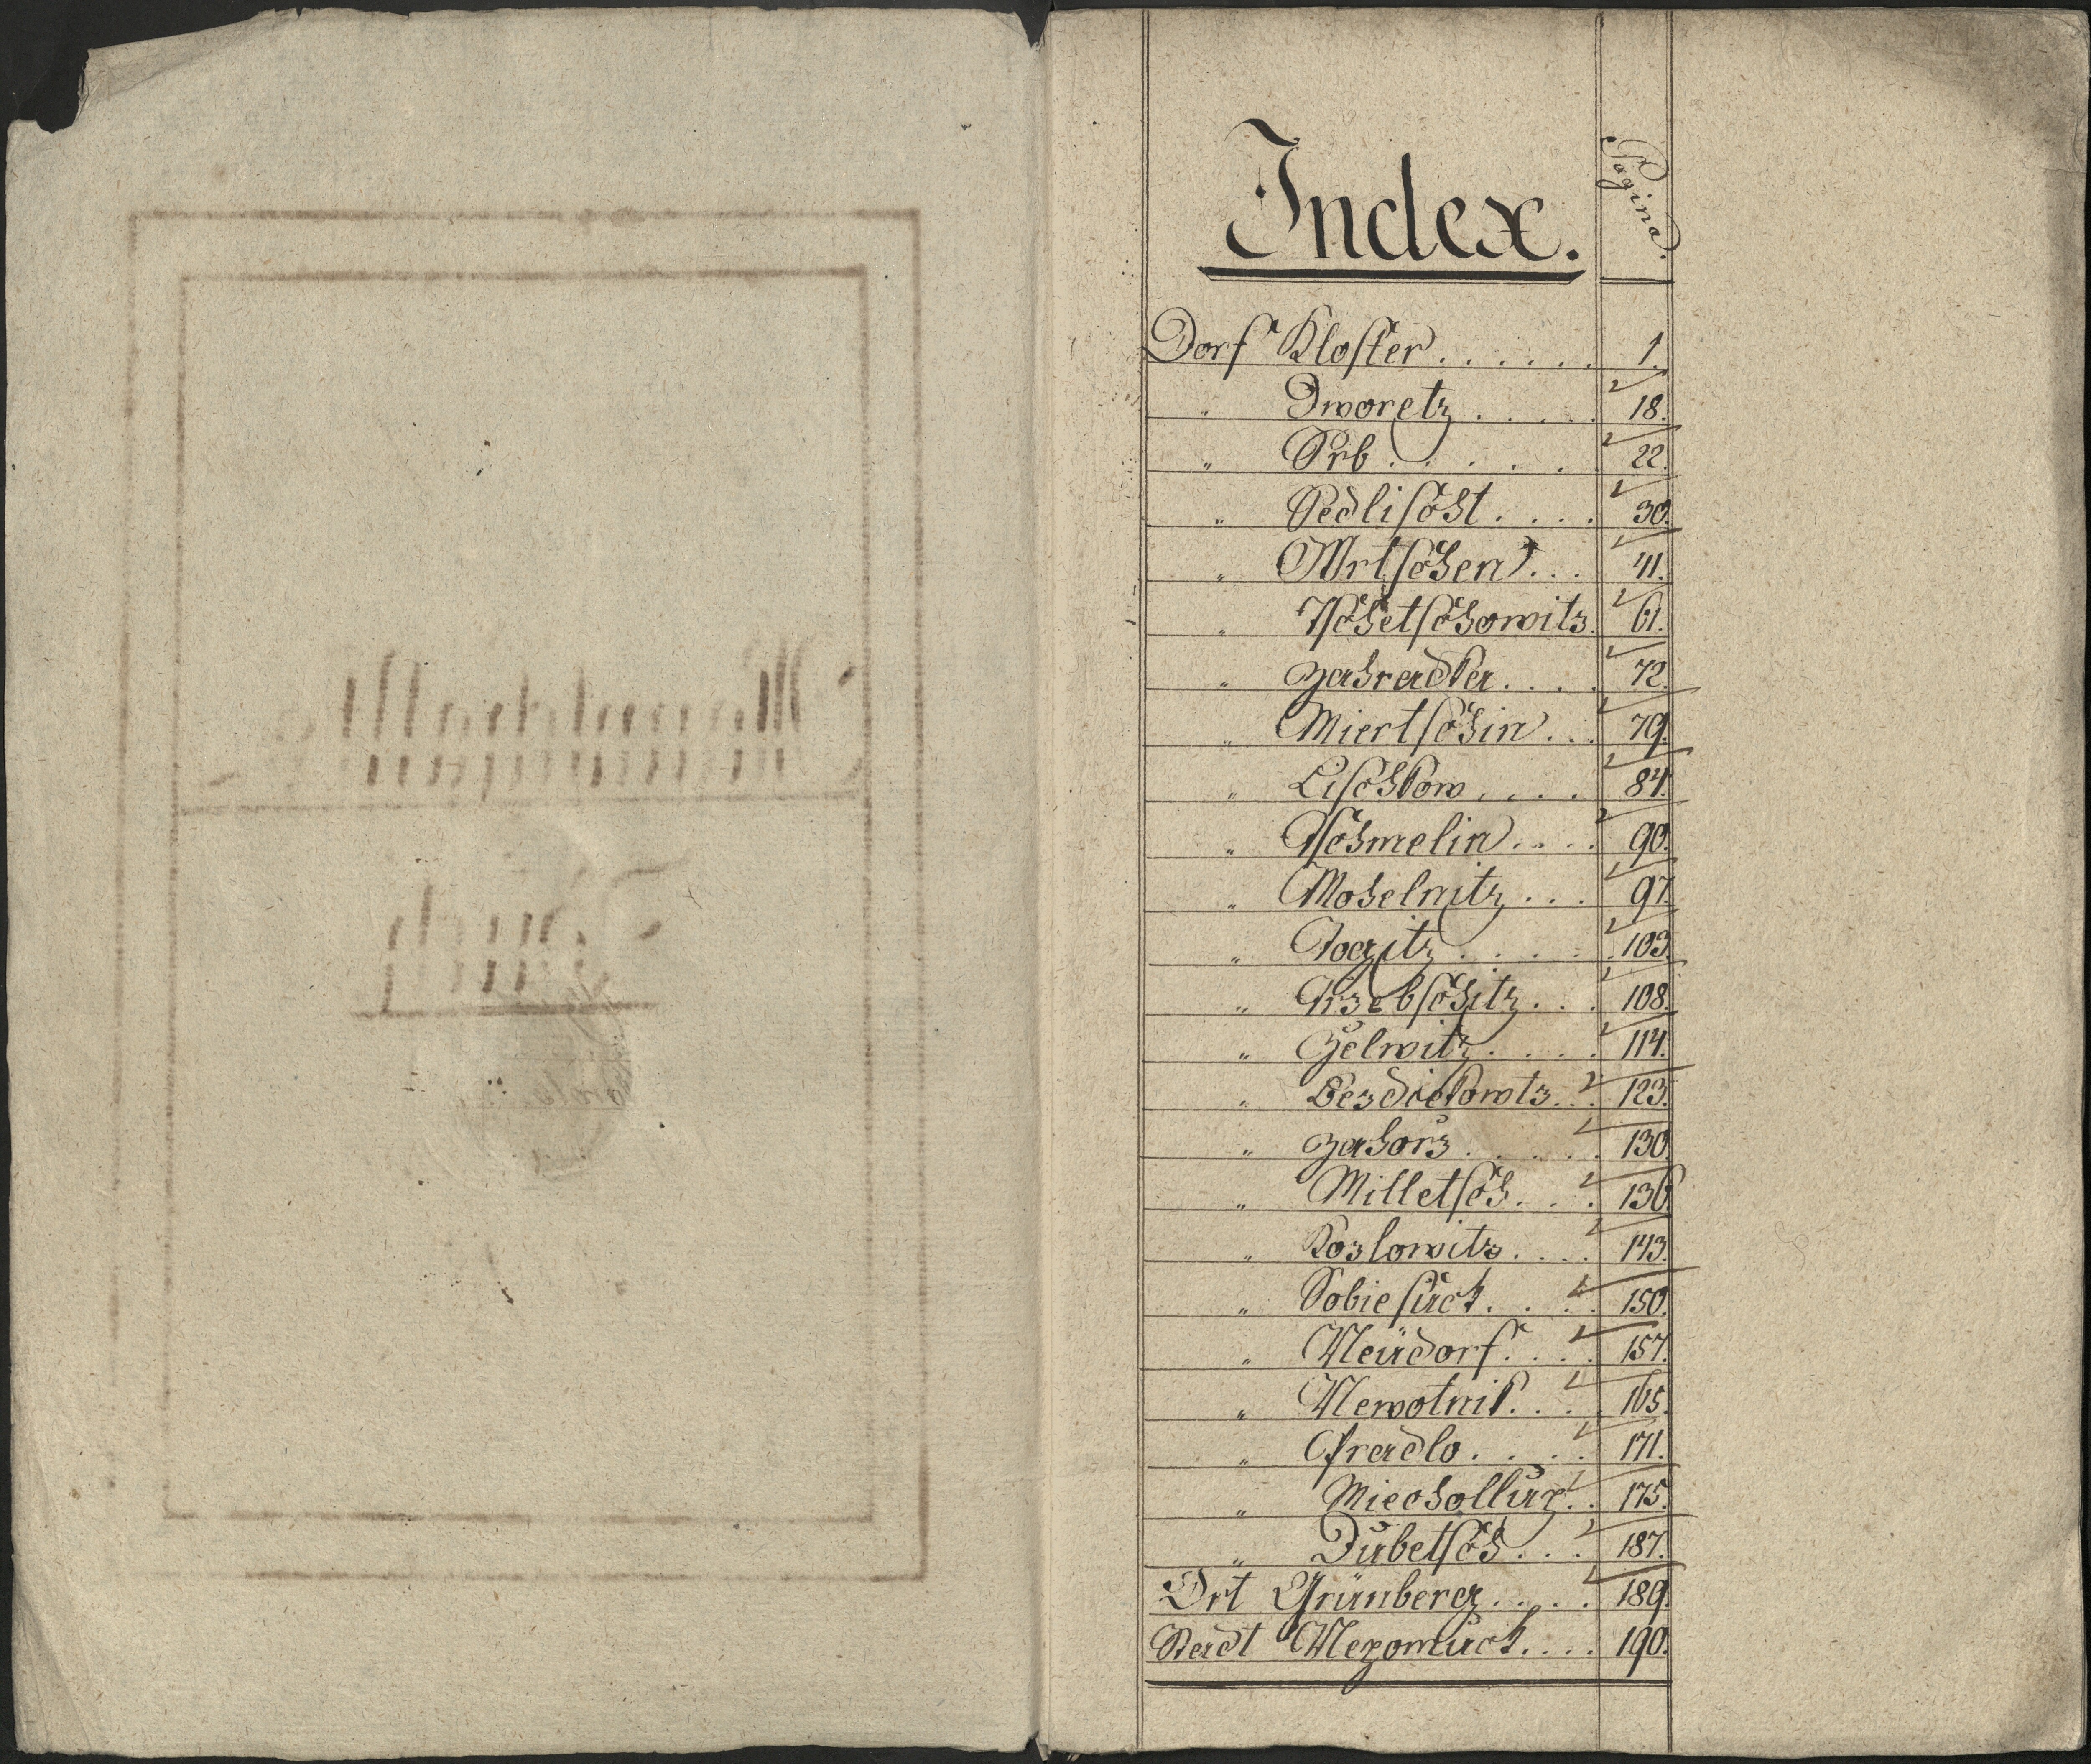 Index.
Pagina.
Dorf Kloster . . . . . . 1.
" Dworetz . . . . . 18.
" Srb . . . . . 22.
" Sedlischt . . . . 30.
" Wrtschen . . . 41.
" Tschetschowitz. 61.
" Zahradka . . . . 72.
" Miertschin . . . 79.
" Lischkow . . . . 84.
" Tschmelin . . . . 90.
" Mohelnitz . . . 97.
" Jogitz . . . . . 103.
" Trzebschitz . . . 108.
" Zelwitz . . . . 114.
" Bezdiekowtz . . . 123.
" Zahorz . . . . . 130.
" Milletsch . . . . 136.
" Kozlowitz . . . . 143.
" Sobiesuck . . . . 150.
" Neudorf . . . . 157.
" Newotnik . . . . 165.
" Gradlo . . . . 171.
" Miechollup . . 175.
" Dubetsch . . . 187.
Ort Grünberg . . . . 189.
Stadt Nepomuck . . . . 190.